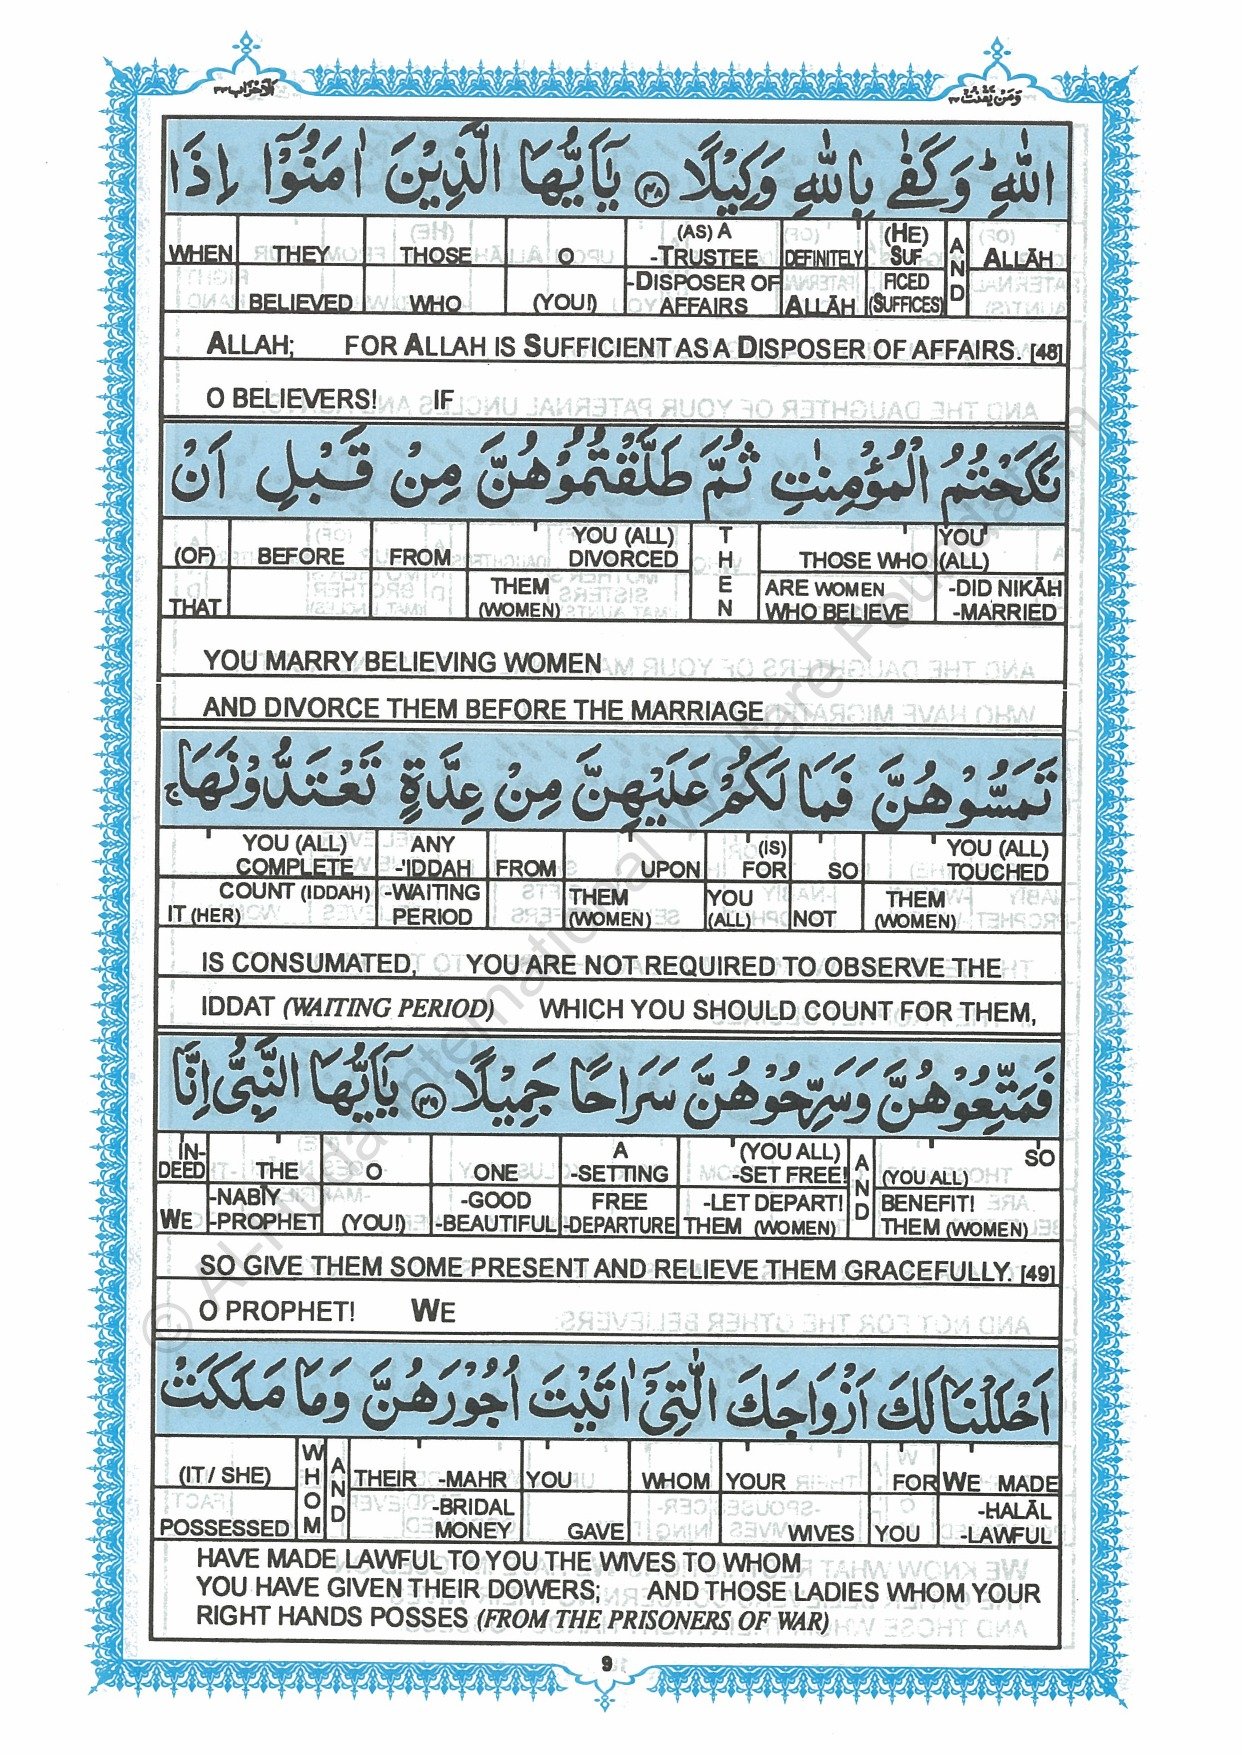 وَمَنْ يَّقْنُتْ ٢٢ اَلْاَحْزَاب ٣٣
اللهِ ؕ وَكَفٰى بِاللهِ وَكِيْلًا ﴿۴۸﴾ يٰۤاَيُّهَا الَّذِيْنَ اٰمَنُوْۤا اِذَا
WHEN THEY THOSE O (AS) A -TRUSTEE DEFINITELY (HE) SUF AND ALLĀH
BELIEVED WHO (YOU!) -DISPOSER OF AFFAIRS ALLĀH FICED (SUFFICES)
ALLAH; FOR ALLAH IS SUFFICIENT AS A DISPOSER OF AFFAIRS. [48]
O BELIEVERS! IF
نَكَحْتُمُ الْمُؤْمِنٰتِ ثُمَّ طَلَّقْتُمُوْهُنَّ مِنْ قَبْلِ اَنْ
(OF) BEFORE FROM YOU (ALL) DIVORCED THEN THOSE WHO YOU (ALL)
THAT THEM (WOMEN) ARE WOMEN WHO BELIEVE -DID NIKĀH -MARRIED
YOU MARRY BELIEVING WOMEN
AND DIVORCE THEM BEFORE THE MARRIAGE
تَمَسُّوْهُنَّ فَمَا لَكُمْ عَلَيْهِنَّ مِنْ عِدَّةٍ تَعْتَدُّوْنَهَا ۚ
YOU (ALL) COMPLETE ANY -'IDDAH FROM UPON (IS) FOR SO YOU (ALL) TOUCHED
COUNT (IDDAH) IT (HER) -WAITING PERIOD THEM (WOMEN) YOU (ALL) NOT THEM (WOMEN)
IS CONSUMATED, YOU ARE NOT REQUIRED TO OBSERVE THE
IDDAT (WAITING PERIOD) WHICH YOU SHOULD COUNT FOR THEM,
فَمَتِّعُوْهُنَّ وَسَرِّحُوْهُنَّ سَرَاحًا جَمِيْلًا ﴿۴۹﴾ يٰۤاَيُّهَا النَّبِىُّ اِنَّا
IN-DEED THE O ONE A -SETTING (YOU ALL) -SET FREE! AND SO (YOU ALL)
WE -NABĪY -PROPHET (YOU!) -GOOD -BEAUTIFUL FREE -DEPARTURE -LET DEPART! THEM (WOMEN) BENEFIT! THEM (WOMEN)
SO GIVE THEM SOME PRESENT AND RELIEVE THEM GRACEFULLY. [49]
O PROPHET! WE
اَحْلَلْنَا لَكَ اَزْوَاجَكَ الّٰتِىْۤ اٰتَيْتَ اُجُوْرَهُنَّ وَمَا مَلَكَتْ
(IT/ SHE) WHOM AND THEIR -MAHR YOU WHOM YOUR FOR WE MADE
POSSESSED -BRIDAL MONEY GAVE WIVES YOU -HALĀL -LAWFUL
HAVE MADE LAWFUL TO YOU THE WIVES TO WHOM
YOU HAVE GIVEN THEIR DOWERS; AND THOSE LADIES WHOM YOUR
RIGHT HANDS POSSES (FROM THE PRISONERS OF WAR)
9